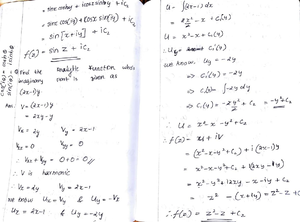 = sinx coshy + icosx sinhy + iC₂
= sinx cos(iy) + cosx sin(iy) + iC₂
= sin[x+iy] + iC₂
f(z) = sin z + iC₂
Find the analytic function whose
imaginary part is given as
(2x-1)y
Ans: V = (2x-1)y
= 2xy - y
Vₓ = 2y Vy = 2x-1
Vₓₓ = 0 Vyy = 0
∴ Vₓₓ + Vyy = 0+0 = 0
∴ V is harmonic
Vₓ = 2y Vy = 2x-1
we know Uₓ = Vy & Uy = -Vₓ
Uₓ = 2x-1 & Uy = -2y
U = ∫(2x-1) dx
U = x² - x + C₁(y)
∴ Uy = C₁'(y)
we know Uy = -2y
⇒ C₁'(y) = -2y
⇒ C₁(y) = ∫-2y dy
⇒ C₁(y) = -2y²/2 + C₂ = -y² + C₂
∴ U = x² - x - y² + C₂
∴ f(z) = U + iV
= (x² - x - y² + C₂) + i(2x-1)y
= x² - x - y² + C₂ + i(2xy - y)
= x² - y² + i2xy - x - iy + C₂
= z² - (x+iy) = z² - z + C₂
∴ f(z) = z² - z + C₂